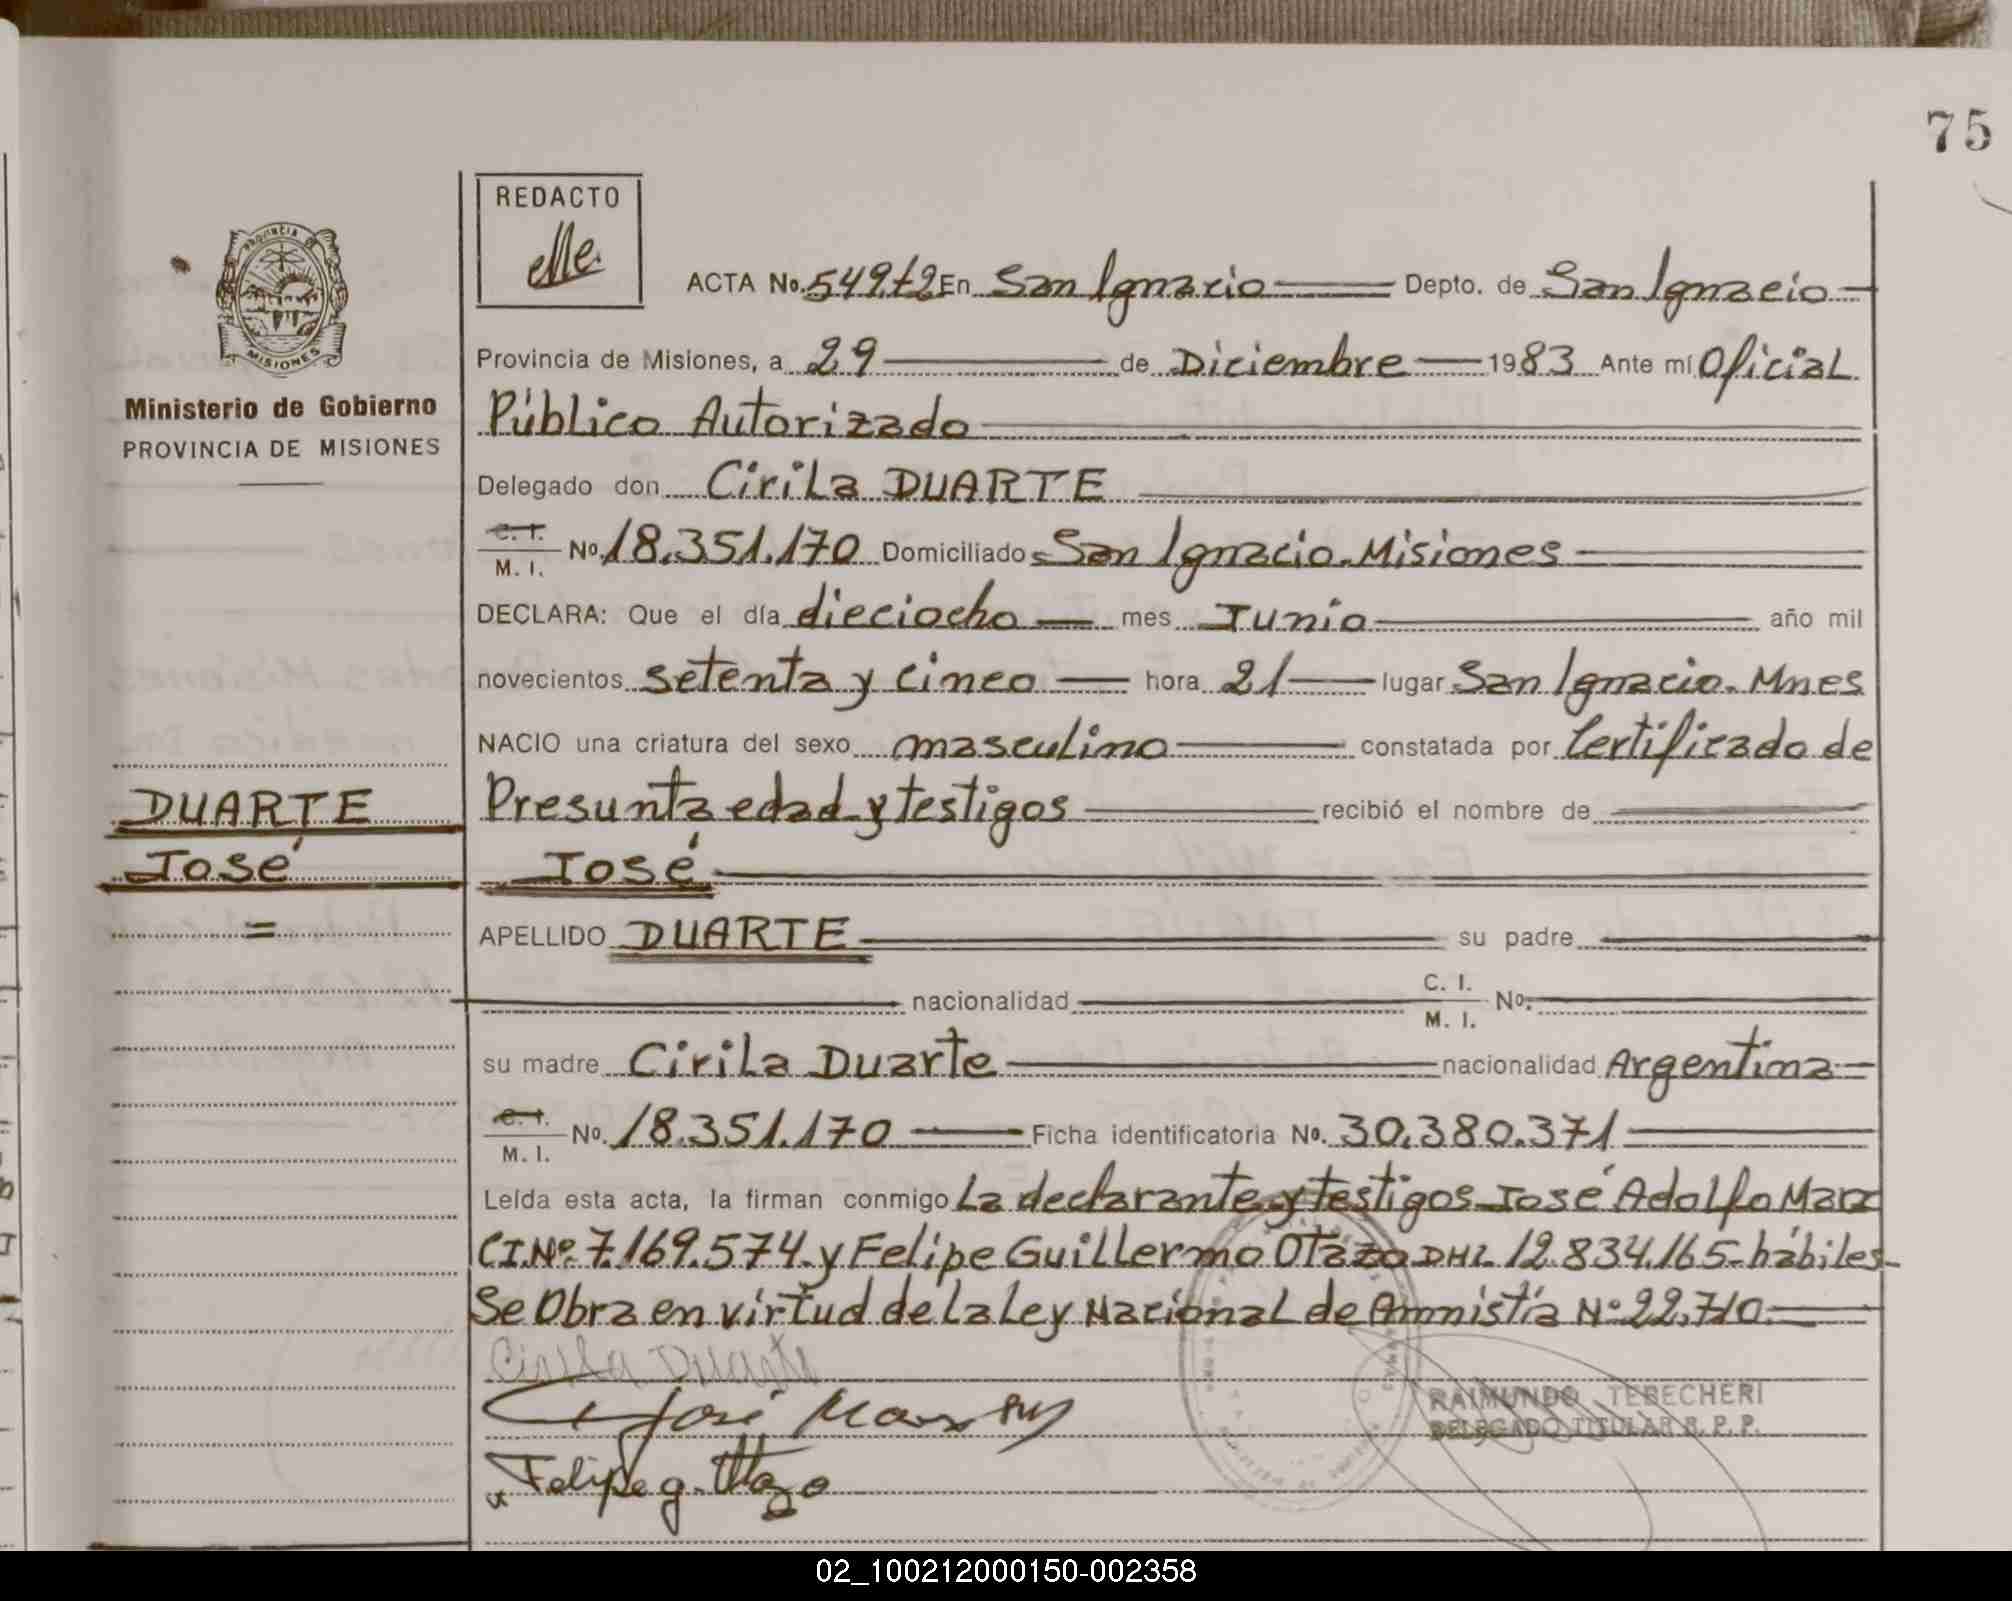 75
REDACTO
ACTA No. 549.t2 En San Ignacio Depto. de San Ignacio
PROVINCIA DE
MISIONES
Provincia de Misiones, a 29 de Diciembre 1983 Ante mí Oficial
Ministerio de Gobierno
Público Autorizado
PROVINCIA DE MISIONES
Delegado don Cirila DUARTE
C. I.
M. I. No. 18.351.170 Domiciliado San Ignacio. Misiones
DECLARA: Que el día dieciocho mes Junio año mil
novecientos setenta y cinco hora 21 lugar San Ignacio. Mnes
NACIO una criatura del sexo masculino constatada por Certificado de
DUARTE
Presunta edad y testigos recibió el nombre de
José
José
=
APELLIDO DUARTE su padre
nacionalidad C. I.
M. I. No.
su madre Cirila Duarte nacionalidad Argentina
C. I.
M. I. No. 18.351.170 Ficha identificatoria No. 30.380.371
Leída esta acta, la firman conmigo La declarante y testigos José Adolfo Marx
CI.Nº 7.169.574. y Felipe Guillermo Otazo DNI. 12.834.165- hábiles-
Se Obra en virtud de la Ley Nacional de Amnistía Nº 22.710.
Cirila Duarte
José Marx
RAIMUNDO TEBECHERI
DELEGADO TITULAR R. P. P.
Felipe g. Otazo
02_100212000150-002358